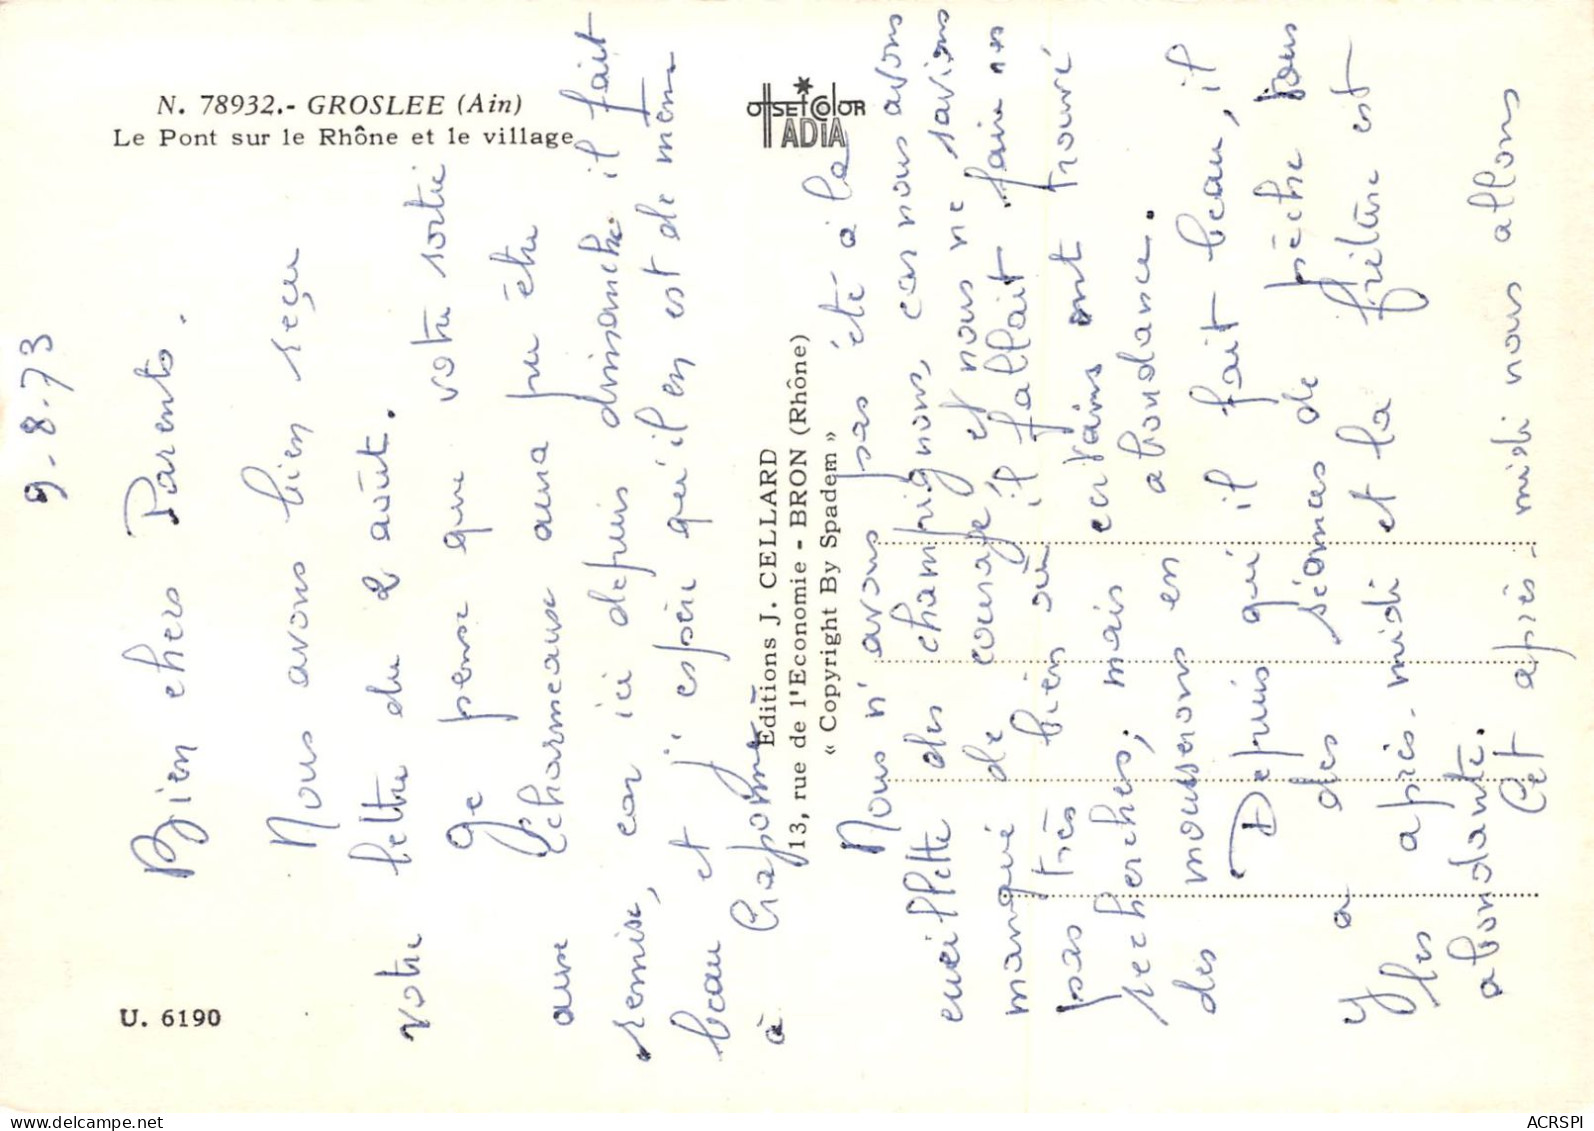 N. 78932.- GROSLEE (Ain)
Le Pont sur le Rhône et le village
OffSET COlOR
ADIA
Editions J. CELLARD
13, rue de l'Economie - BRON (Rhône)
« Copyright By Spadem »
U. 6190
9-8-73
Bien chers Parents.
Nous avons bien reçu
votre lettre du 2 août.
Je pense que votre sortie
aux Echarmeaux aura pu être
remise, car ici depuis dimanche il fait
beau et j'espère qu'il en est de même
à Craponne
Nous n'avons pas été à la
cueillette des champignons, car nous avons
manqué de courage et nous ne savions
pas très bien où il fallait faire nos
recherches; mais certains ont trouvé
des mousserons en abondance.
Depuis qu'il fait beau, il
y a des séances de pêche tous
les après-midi et la friture est
abondante.
Cet après-midi nous allons
delcampe.net
ACRSPI